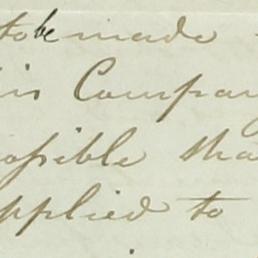 to be made
Company
possible tha
applied to